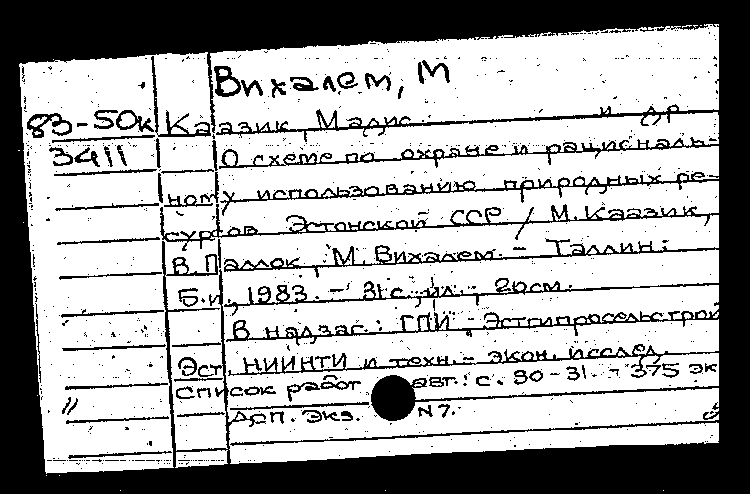 Вихалем, М
83-50к Каазик, Мадис. и др
3411 О схеме по охране и рациональ-
ному использованию природных ре-
сурсов Эстонской ССР / М. Каазик,
В. Паллок, М. Вихалем. - Таллин:
Б.и., 1983. - 31 с., ил.; 20см.
В надзаг.: ГПИ "Эстгипросельстрой
Эст. НИИНТИ и техн.-экон. исслед.
Список работ авт.: с. 30-31. - 375 эк
// Доп. экз. N7.